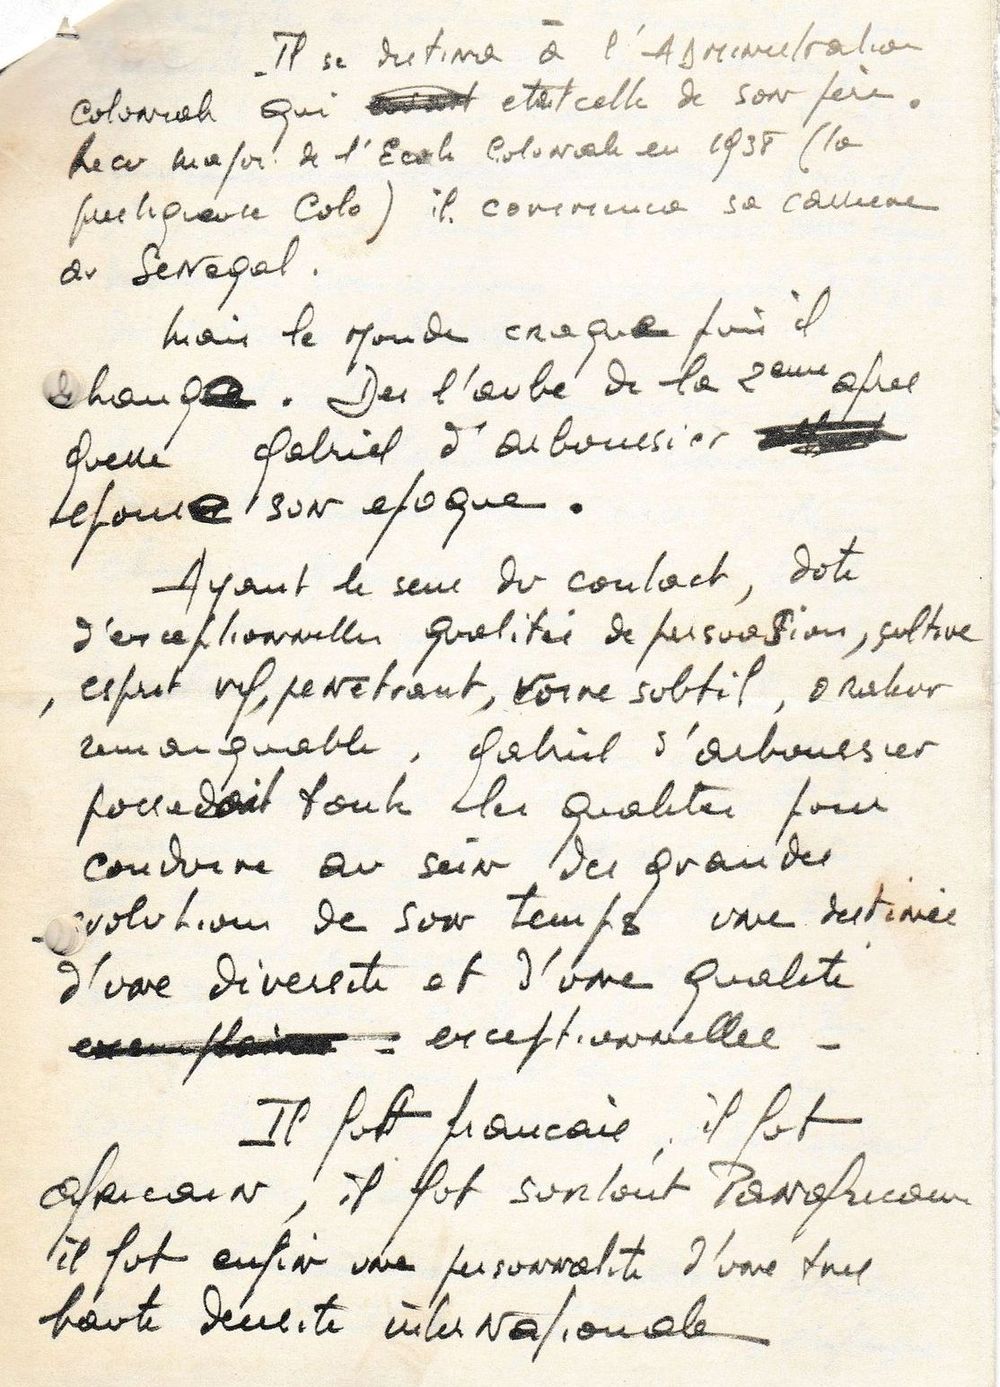 Il se destina à l'Administration
Coloniale qui etait celle de son père.
Recu major de l'Ecole Coloniale en 1938 (la
prestigieuse Colo) il commenca sa carriere
au Senegal.
Mais le monde craqua puis il
changea. Des l'aube de la 2eme apres
guerre Gabriel d'arboussier
epousa son epoque.
Ayant le sens du contact, doté
d'exceptionnelles qualités de persuasion, cultive
, esprit vif, penetrant, voire subtil, orateur
remarquable, Gabriel d'arboussier
possedait toute les qualites pour
conduire au sein des grandes
evolutions de son temps une destinée
d'une diversite et d'une qualité
exceptionnelles -
Il fut francais, il fut
africain, il fut surtout Panafricain
il fut enfin une personnalite d'une tres
haute densite internationale